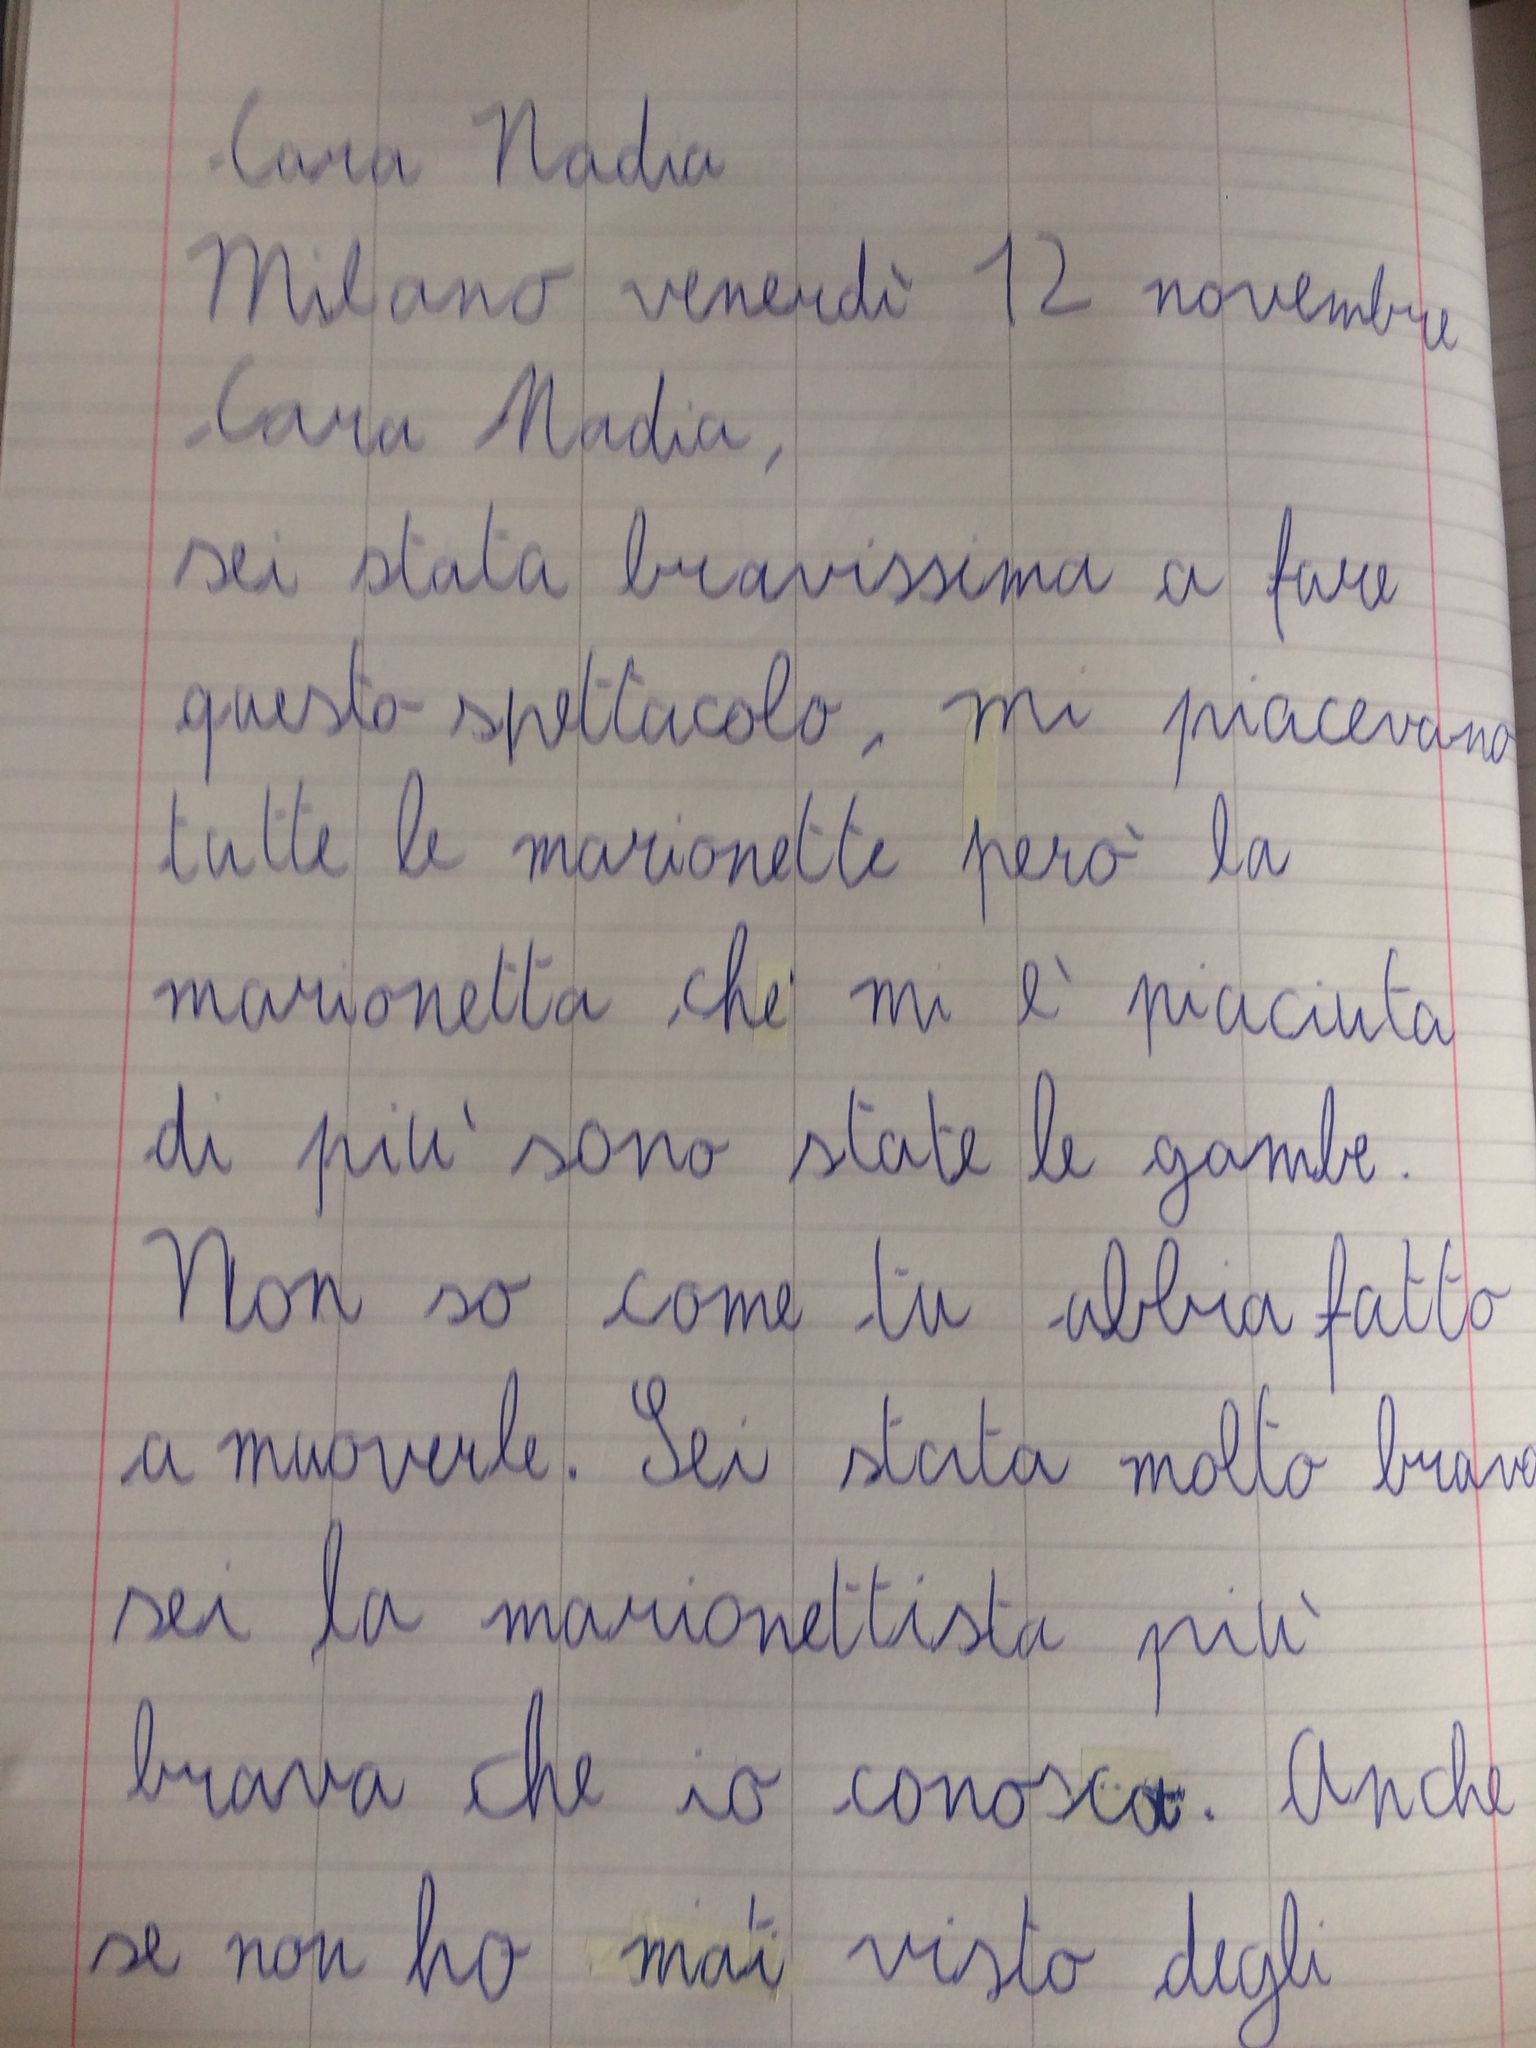 Cara Nadia
Milano venerdì 12 novembre
Cara Nadia,
sei stata bravissima a fare
questo spettacolo, mi piacevano
tutte le marionette però la
marionetta che mi è piaciuta
di più sono state le gambe.
Non so come tu abbia fatto
a muoverle. Sei stata molto brava
sei la marionettista più
brava che io conosca. Anche
se non ho mai visto degli